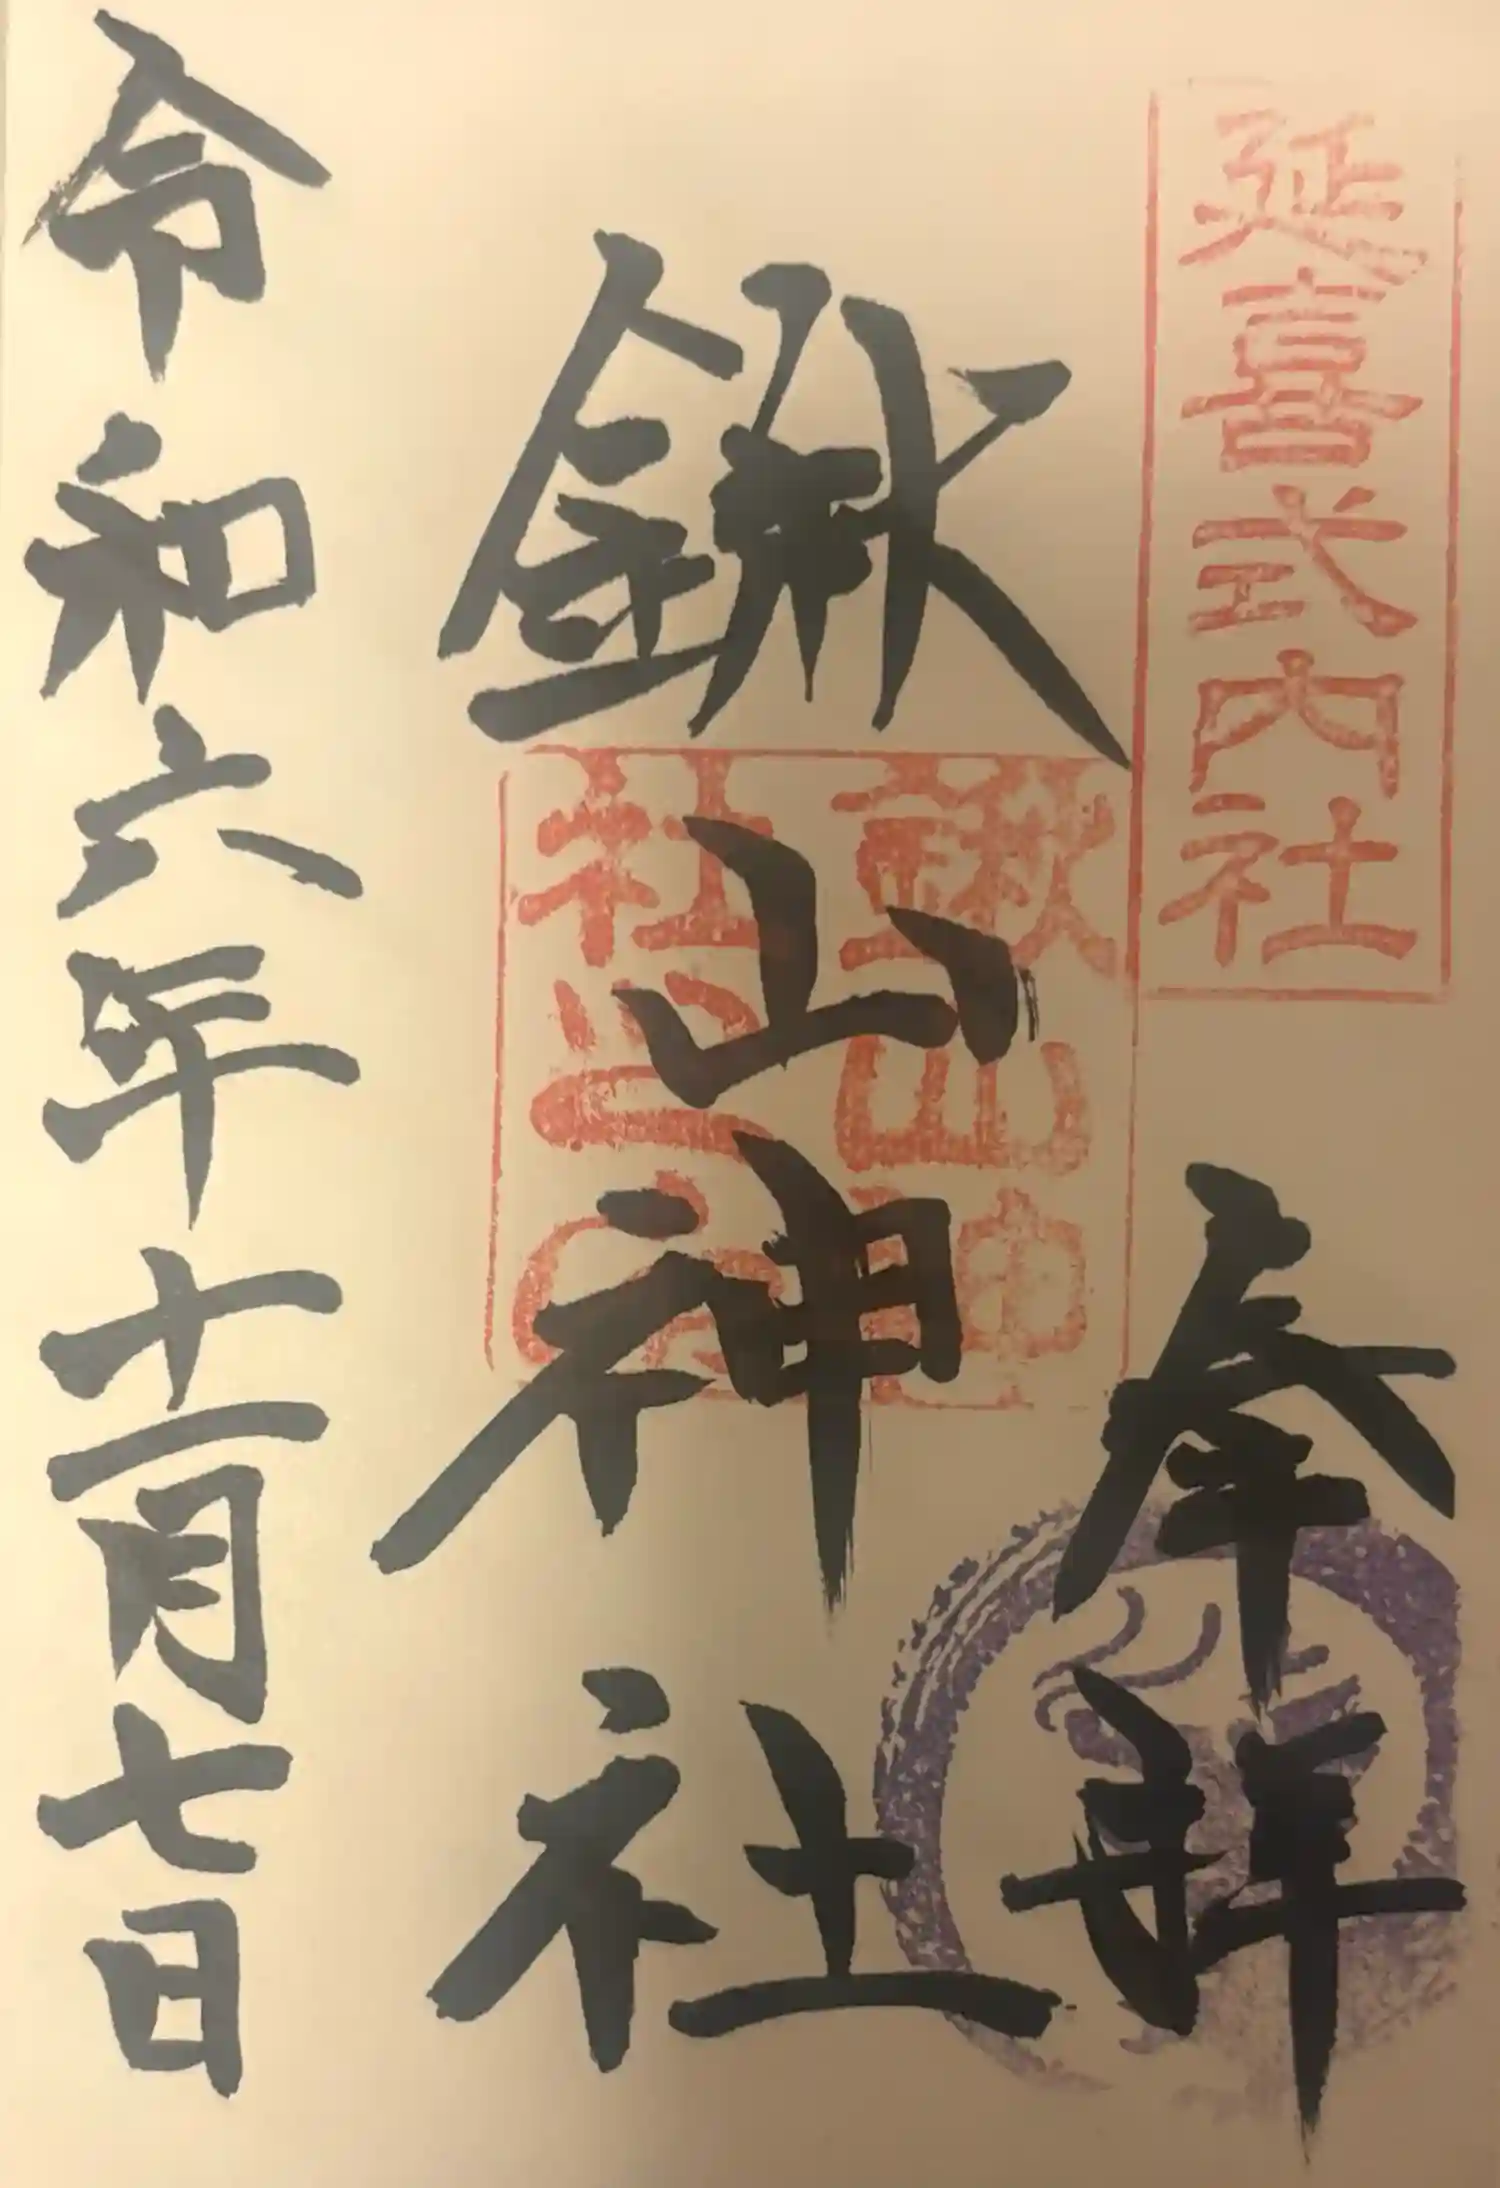 延喜式内社
奉拝
鍬山神社
鍬山神
社之印
令和六年十一月七日